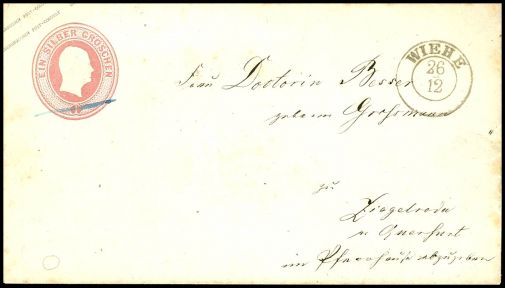 EIN SILBER GROSCHEN
WIEHE
26
12
Frau Doctorin Besser
geborne Grossmann
zu
Ziegelroda
b Querfurt
im Pfarrhause abzugeben